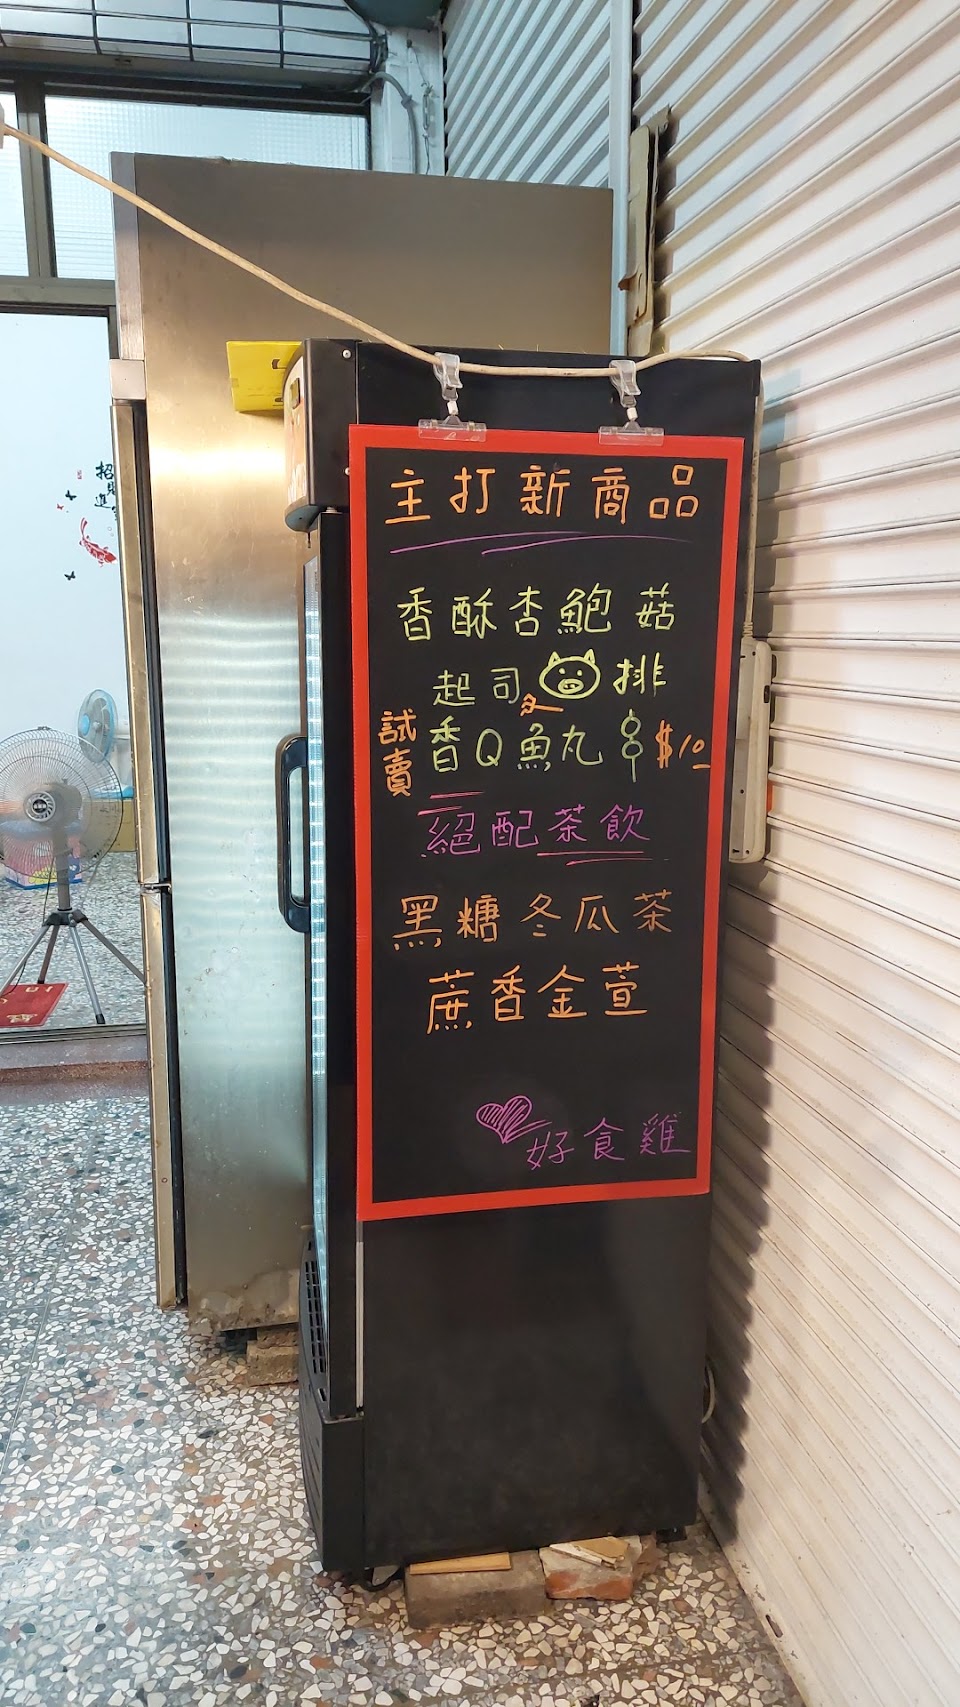 主打新商品
香酥杏鮑菇
起司排
試賣
香Q魚丸 $10
絕配茶飲
黑糖冬瓜茶
蔗香金萱
好食雞
招財
進